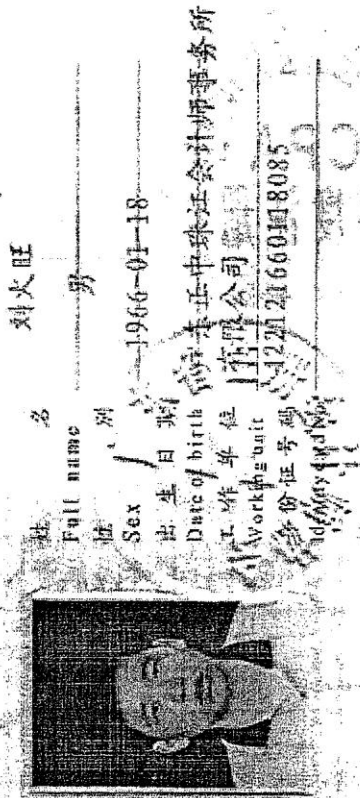 姓 名 刘火旺
Full name
性 别 男
Sex
出生日期 1966-01-18
Date of birth
工作单位 中珠江会计师事务所
Working unit 有限公司
身份证号码 422121660118085